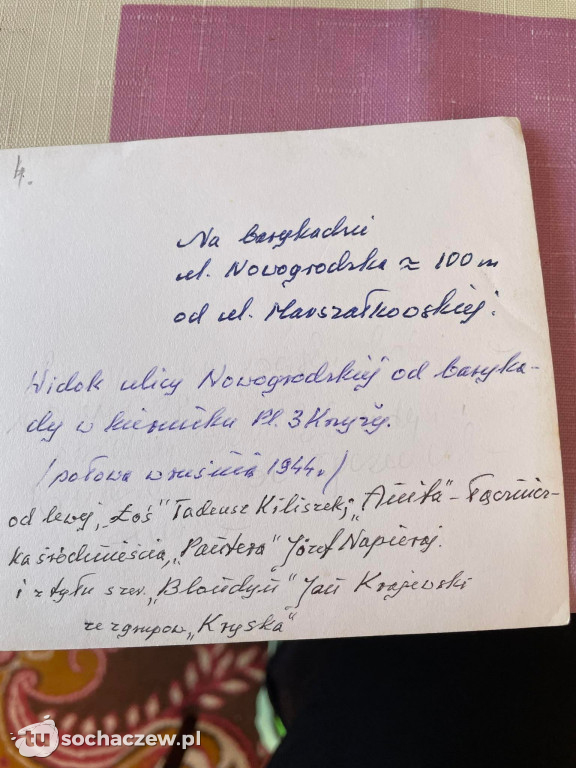 4.
Na barykadzie
ul. Nowogrodzka ≈ 100 m
od ul. Marszałkowskiej.
Widok ulicy Nowogrodzkiej od baryka-
dy w kierunku Pl. 3 Krzyży.
(połowa września 1944 r.)
od lewej, „Łoś" Tadeusz Kiliszek, „Anita" - Łącznicz-
ka śródmieścia, „Pantera" Józef Napieraj.
i z tyłu szer. „Blondyn" Jan Krajewski
ze zgrupow. „Kryska"
tu sochaczew.pl